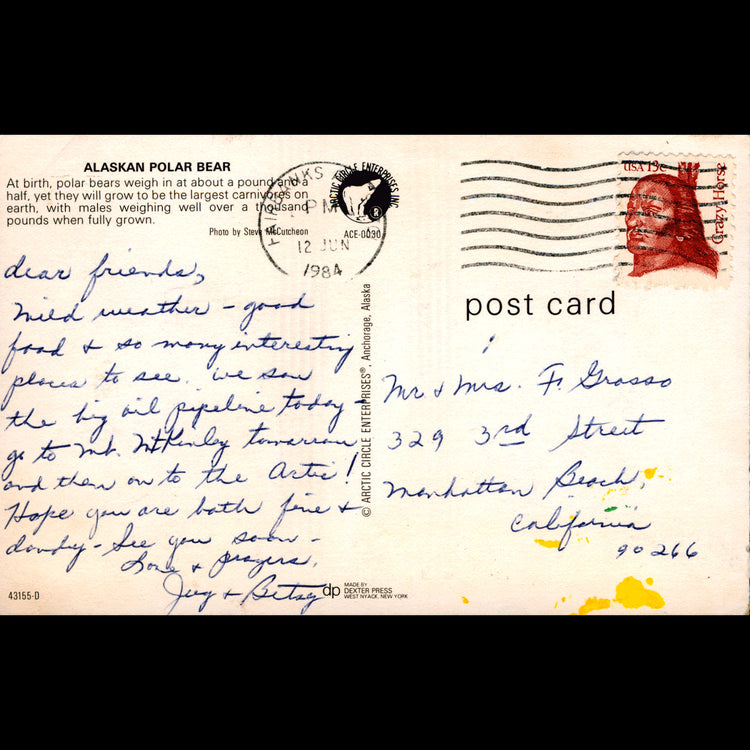 ALASKAN POLAR BEAR
At birth, polar bears weigh in at about a pound and a
half, yet they will grow to be the largest carnivores on
earth, with males weighing well over a thousand
pounds when fully grown.
Photo by Steve McCutcheon
ARCTIC CIRCLE ENTERPRISES INC.
ACE-0030
FAIRBANKS
PM
12 JUN
1984
USA 13c
Crazy Horse
post card
dear friends,
Mild weather - good
food & so many interesting
places to see. we saw
the big oil pipeline today
go to Mt. McKinley tomorrow
and then on to the Artic!
Hope you are both fine &
dandy - See you soon -
Love & prayers,
& Betsy
Mr & Mrs. F. Grasso
329 3rd Street
Manhattan Beach,
California
90266
© ARCTIC CIRCLE ENTERPRISES®, Anchorage, Alaska
43155-D
dp MADE BY
DEXTER PRESS
WEST NYACK, NEW YORK